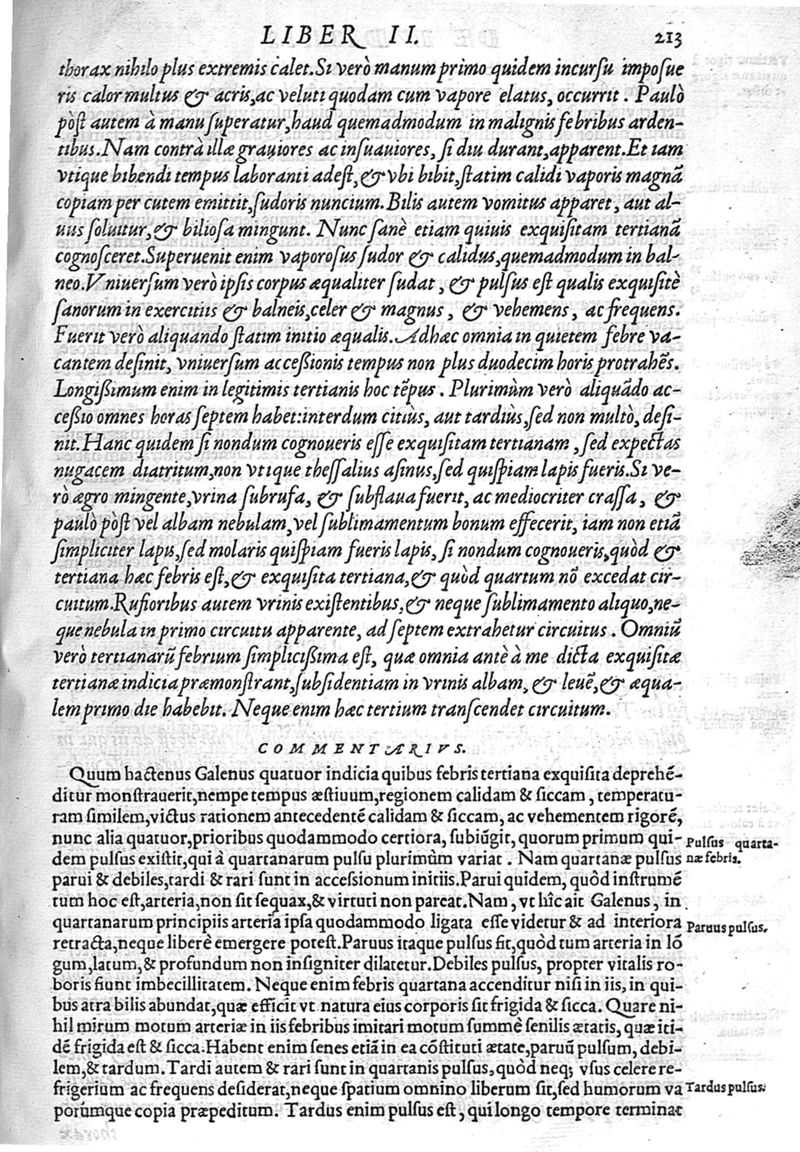 LIBER II. 213
thorax nihilo plus extremis calet. Si verò manum primo quidem incursu imposue
ris calor multus & acris, ac veluti quodam cum vapore elatus, occurrit. Paulò
pòst autem à manu superatur, haud quemadmodum in malignis febribus arden-
tibus. Nam contrà illæ grauiores ac insuauiores, si diu durant, apparent. Et iam
vtique bibendi tempus laboranti adest, & vbi bibit, statim calidi vaporis magnã
copiam per cutem emittit, sudoris nuncium. Bilis autem vomitus apparet, aut al-
uus soluitur, & biliosa mingunt. Nunc sanè etiam quiuis exquisitam tertianã
cognosceret. Superuenit enim vaporosus sudor & calidus, quemadmodum in bal-
neo. Vniuersum verò ipsis corpus æqualiter sudat, & pulsus est qualis exquisitè
sanorum in exercitiis & balneis, celer & magnus, & vehemens, ac frequens.
Fuerit verò aliquando statim initio æqualis. Adhæc omnia in quietem febre va-
cantem desinit, vniuersum accessionis tempus non plus duodecim horis protrahẽs.
Longissimum enim in legitimis tertianis hoc tẽpus. Plurimùm verò aliquãdo ac-
cessio omnes horas septem habet: interdum citiùs, aut tardiùs, sed non multò, desi-
nit. Hanc quidem si nondum cognoueris esse exquisitam tertianam, sed expectas
nugacem diatritum, non vtique thessalius asinus, sed quispiam lapis fueris. Si ve-
rò ægro mingente, vrina subrufa, & subflaua fuerit, ac mediocriter crassa, &
paulò pòst vel albam nebulam, vel sublimamentum bonum effecerit, iam non etiã
simpliciter lapis, sed molaris quispiam fueris lapis, si nondum cognoueris, quòd &
tertiana hæc febris est, & exquisita tertiana, & quòd quartum nõ excedat cir-
cuitum. Rufioribus autem vrinis existentibus, & neque sublimamento aliquo, ne-
que nebula in primo circuitu apparente, ad septem extrahetur circuitus. Omniũ
verò tertianarũ febrium simplicissima est, quæ omnia antè à me dicta exquisitæ
tertianæ indicia præmonstrant, subsidentiam in vrinis albam, & leuẽ, & æqua-
lem primo die habebit. Neque enim hæc tertium transcendet circuitum.
COMMENTARIVS.
Quum hactenus Galenus quatuor indicia quibus febris tertiana exquisita deprehẽ-
ditur monstrauerit, nempe tempus æstiuum, regionem calidam & siccam, temperatu-
ram similem, victus rationem antecedentẽ calidam & siccam, ac vehementem rigorẽ,
nunc alia quatuor, prioribus quodammodo certiora, subiũgit, quorum primum qui-
dem pulsus existit, qui à quartanarum pulsu plurimùm variat. Nam quartanæ pulsus
Pulsus quarta-
næ febris.
parui & debiles, tardi & rari sunt in accessionum initiis. Parui quidem, quòd instrumẽ
tum hoc est, arteria, non sit sequax, & virtuti non pareat. Nam, vt hîc ait Galenus, in
quartanarum principiis arteria ipsa quodammodo ligata esse videtur & ad interiora
Paruus pulsus.
retracta, neque liberè emergere potest. Paruus itaque pulsus fit, quòd tum arteria in lõ
gum, latum, & profundum non insigniter dilatetur. Debiles pulsus, propter vitalis ro-
boris fiunt imbecillitatem. Neque enim febris quartana accenditur nisi in iis, in qui-
bus atra bilis abundat, quæ efficit vt natura eius corporis sit frigida & sicca. Quare ni-
hil mirum motum arteriæ in iis febribus imitari motum summè senilis ætatis, quæ iti-
dẽ frigida est & sicca. Habent enim senes etiã in ea cõstituti ætate, paruũ pulsum, debi-
lem, & tardum. Tardi autem & rari sunt in quartanis pulsus, quòd neq; vsus celere re-
frigerium ac frequens desiderat, neque spatium omnino liberum sit, sed humorum va
Tardus pulsus.
porúmque copia præpeditum. Tardus enim pulsus est, qui longo tempore terminat